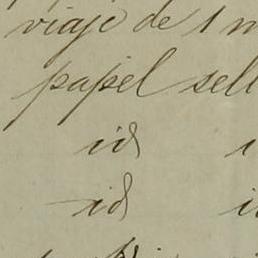 viaje de 1 m
papel sell
id
id